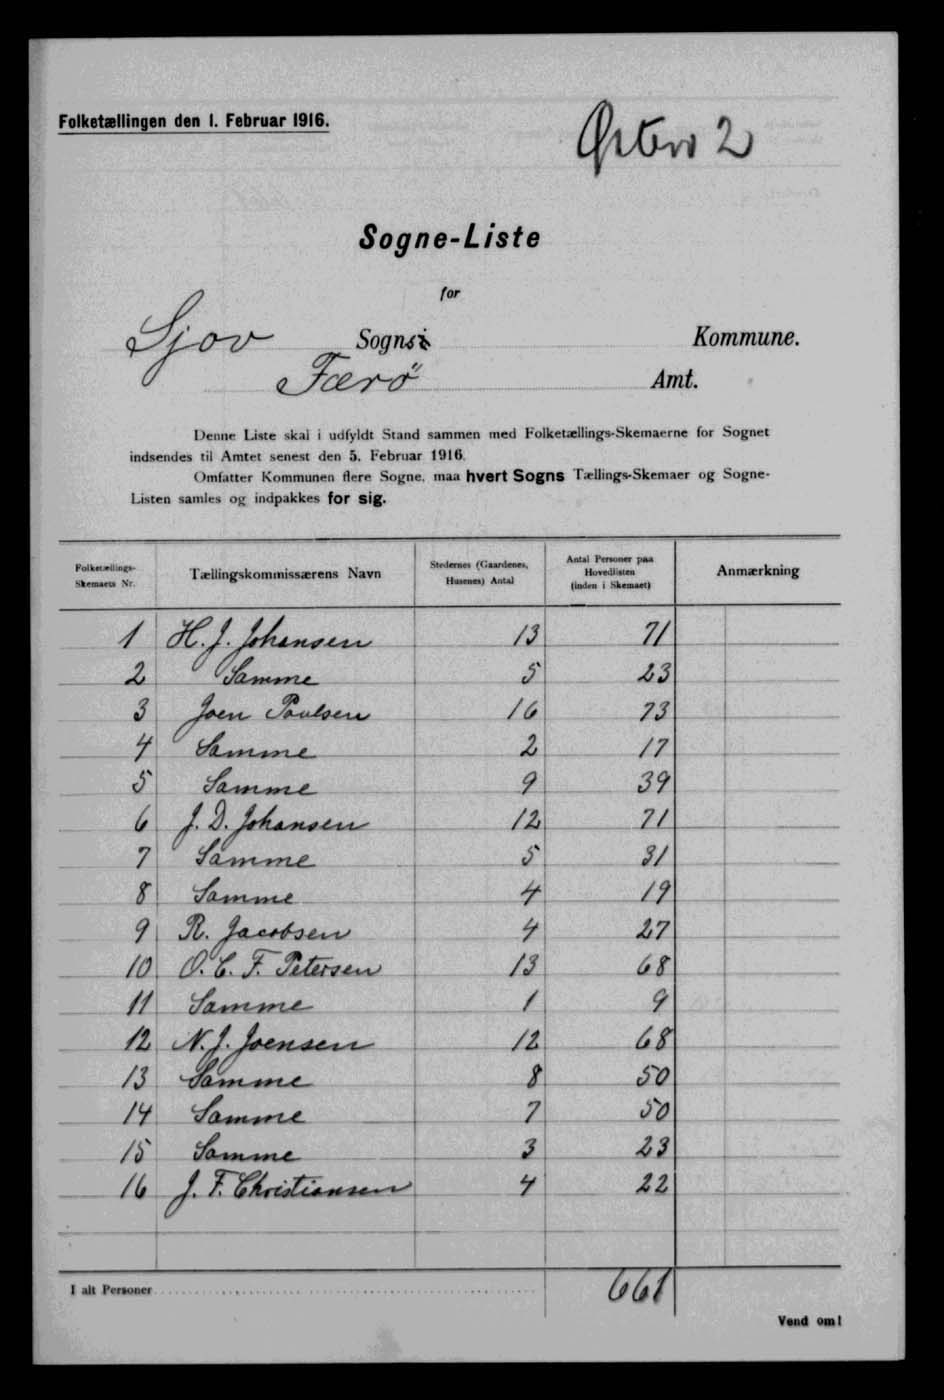 Folketællingen den 1. Februar 1916.
Østerø 2
Sogne-Liste
for
Sjov Sogns i Kommune.
Færø Amt.
Denne Liste skal i udfyldt Stand sammen med Folketællings-Skemaerne for Sognet
indsendes til Amtet senest den 5. Februar 1916.
Omfatter Kommunen flere Sogne, maa hvert Sogns Tællings-Skemaer og Sogne-
Listen samles og indpakkes for sig.
Folketællings-
Skemaets Nr.
Tællingskommissærens Navn
Stedernes (Gaardenes,
Husenes) Antal
Antal Personer paa
Hovedlisten
(inden i Skemaet)
Anmærkning
1 H. J. Johansen 13 71
2 Samme 5 23
3 Joen Poulsen 16 73
4 Samme 2 17
5 Samme 9 39
6 J. D. Johansen 12 71
7 Samme 5 31
8 Samme 4 19
9 R. Jacobsen 4 27
10 O. C. F. Petersen 13 68
11 Samme 1 9
12 N. J. Joensen 12 68
13 Samme 8 50
14 Samme 7 50
15 Samme 3 23
16 J. F. Christiansen 4 22
I alt Personer 661
Vend om!